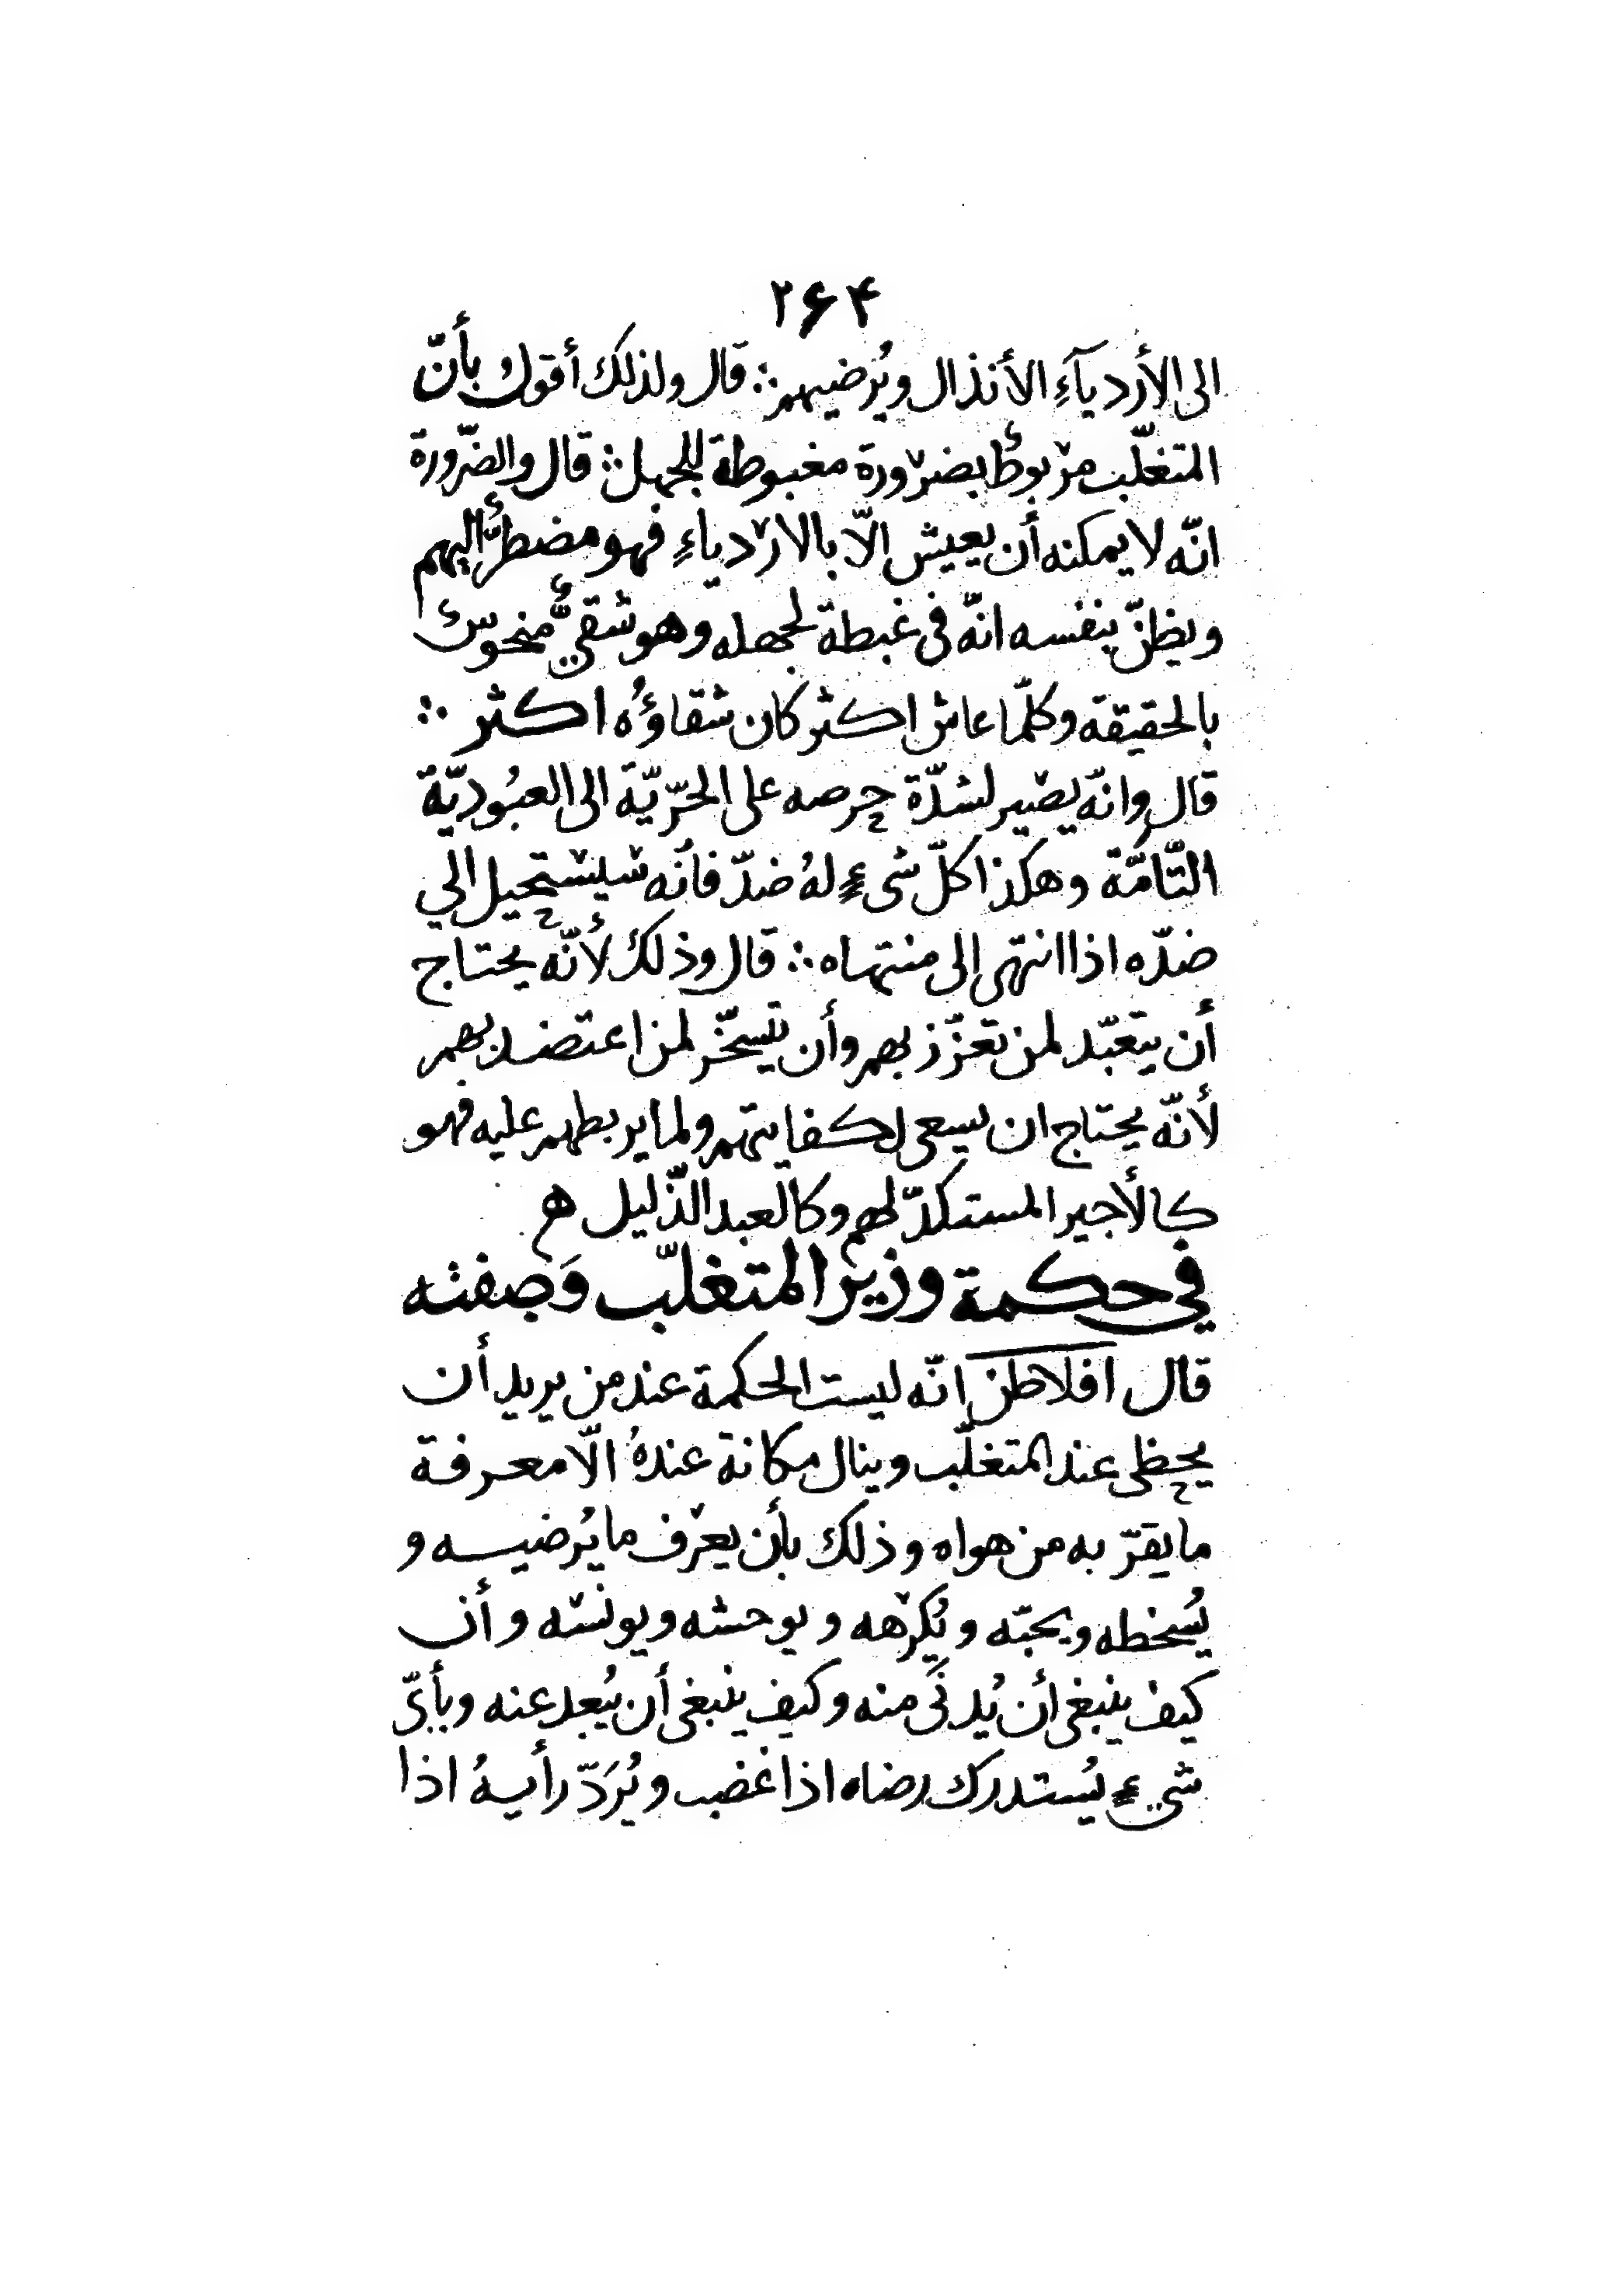 ۲۶۴
الى الأردياءِ الأنذال ويُرضيهم ∴ قال ولذلك أقول بأنّ
المتغلّب مربوطٌ بضرورة مغبوطة للجهل ∴ قال والضّرورة
انّه لا يمكنه أن يعيش الّا بالارْدياءِ فهو مضطرٌّ اليهم
ويظنّ بنفسه انّه فى غبطة لجهله وهو شقيٌّ منحوسٌ
بالحقيقه وكلّما عاش اكثر كان شقاؤُه اكثر ∴
قال وانّه يصير لشدّة حرصه على الحرّيّة الى العبُوديّة
التّامّة وهكذا كلّ شىءٍ لهُ ضدّ فانّه سيستحيل الي
ضدّه اذا انتهى الى منتهاه ∴ قال وذلك لأنّه يحتاج
أن يتعبّد لمن تعزّز بهم وأن يتسخّر لمن اعتضد بهم
لأنّه يحتاج ان يسعى لكفايتهم ولما يربطهم عليه فهو
كالأجير المستكدّ لهم وكالعبد الذّليل ه
في حكمة وزير المتغلّب وَصفته
قال افلاطن انّه ليست الحكمة عند من يريد أن
يحظى عند المتغلّب وينال مكانة عندهُ الّا معرفة
ما يقرّ به من هواه وذلك بأن يعرْف ما يُرضيه و
يُسخطه ويحبّه ويُكرْهه ويوحشه ويونسه وأن
كيف ينبغى أن يُدنَى منه وكيف ينبغى أن يُبعد عنه وبأىّ
شيءٍ يُستدرك رضاه اذا غضب ويُرَدّ رأيهُ اذا